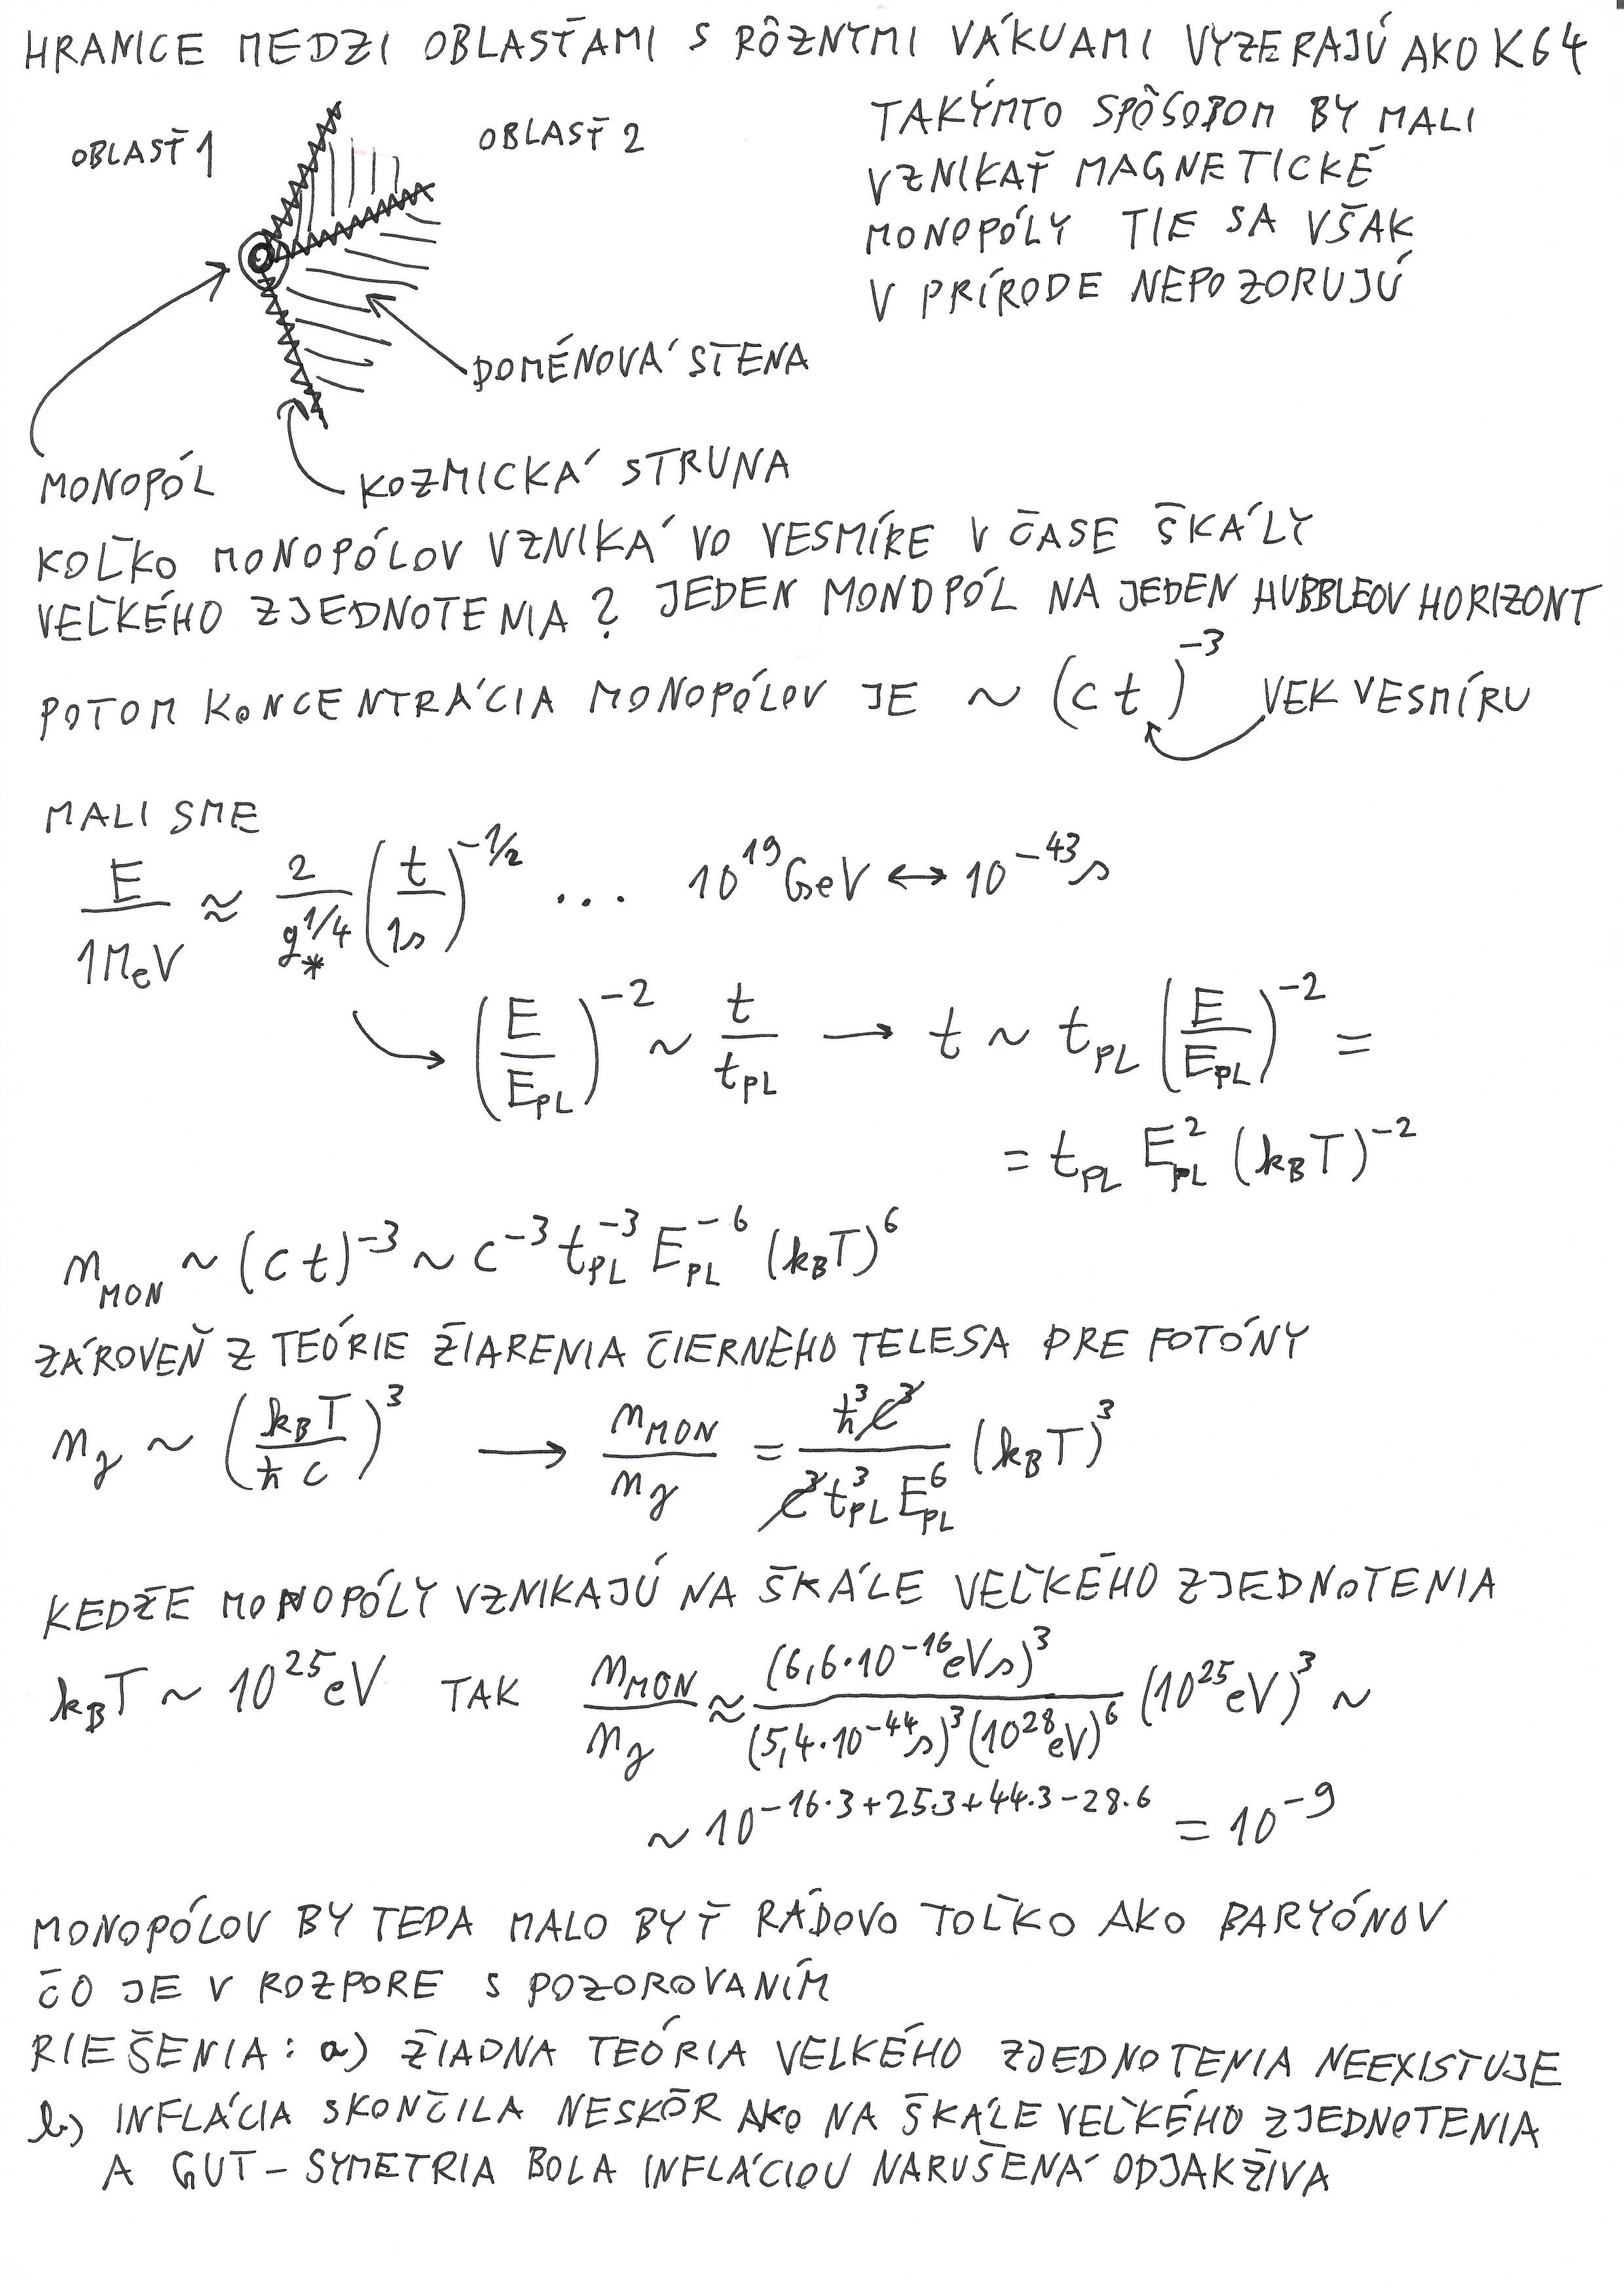 HRANICE MEDZI OBLASŤAMI S RÔZNYMI VÁKUAMI VYZERAJÚ AKO K64
OBLASŤ 1
OBLASŤ 2
TAKÝMTO SPÔSOBOM BY MALI
VZNIKAŤ MAGNETICKÉ
MONOPÓLY TIE SA VŠAK
V PRÍRODE NEPOZORUJÚ
DOMÉNOVÁ STENA
MONOPÓL
KOZMICKÁ STRUNA
KOĽKO MONOPÓLOV VZNIKÁ VO VESMÍRE V ČASE ŠKÁLY
VEĽKÉHO ZJEDNOTENIA? JEDEN MONOPÓL NA JEDEN HUBBLEOV HORIZONT
POTOM KONCENTRÁCIA MONOPÓLOV JE ~ (ct)^-3 VEK VESMÍRU
MALI SME
E/1MeV ≈ 2/g*^1/4 (t/1s)^-1/2 ... 10^19 GeV ↔ 10^-43 s
(E/E_PL)^-2 ~ t/t_PL → t ~ t_PL (E/E_PL)^-2 =
= t_PL E_PL^2 (k_B T)^-2
n_MON ~ (ct)^-3 ~ c^-3 t_PL^-3 E_PL^-6 (k_B T)^6
ZÁROVEŇ Z TEÓRIE ŽIARENIA ČIERNEHO TELESA PRE FOTÓNY
n_γ ~ (k_B T/ħc)^3 → n_MON/n_γ = ħ^3 c^3/(c^3 t_PL^3 E_PL^6) (k_B T)^3
KEDŽE MONOPÓLY VZNIKAJÚ NA ŠKÁLE VEĽKÉHO ZJEDNOTENIA
k_B T ~ 10^25 eV TAK n_MON/n_γ ≈ (6,6·10^-16 eVs)^3/((5,4·10^-44 s)^3 (10^28 eV)^6) (10^25 eV)^3 ~
~ 10^-16·3+25.3+44.3-28.6 = 10^-9
MONOPÓLOV BY TEDA MALO BYŤ RÁDOVO TOĽKO AKO BARYÓNOV
ČO JE V ROZPORE S POZOROVANÍM
RIEŠENIA: a) ŽIADNA TEÓRIA VELKÉHO ZJEDNOTENIA NEEXISTUJE
b) INFLÁCIA SKONČILA NESKÔR AKO NA ŠKÁLE VEĽKÉHO ZJEDNOTENIA
A GUT-SYMETRIA BOLA INFLÁCIOU NARUŠENÁ ODJAKŽIVA